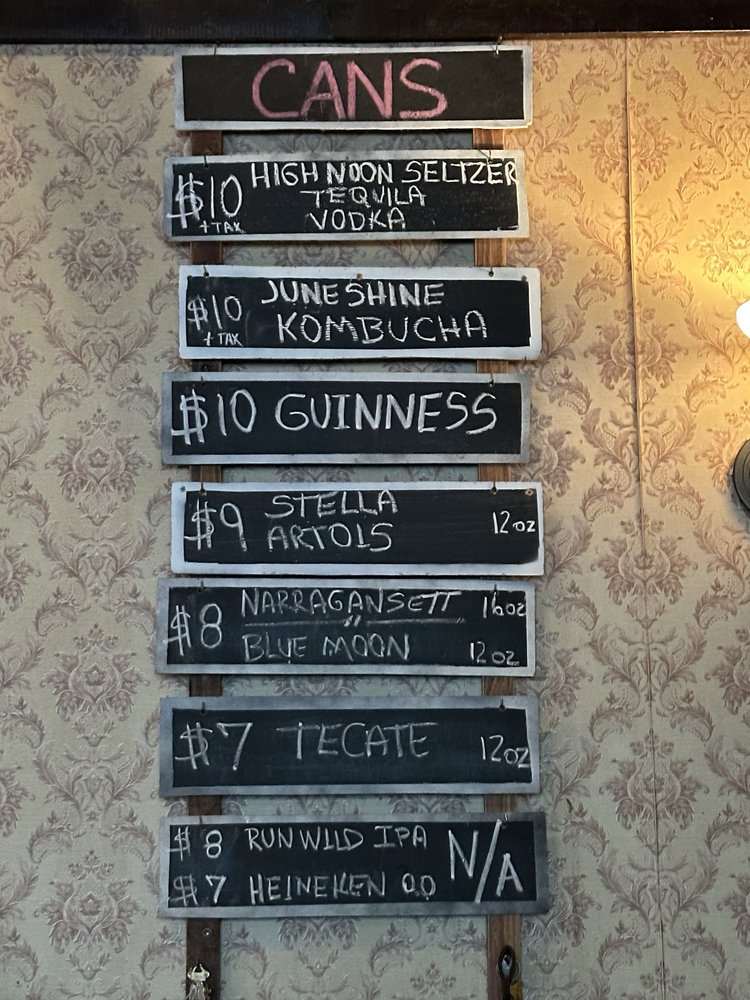 CANS
$10 HIGH NOON SELTZER
+TAX TEQUILA
VODKA
$10 JUNESHINE
+TAX KOMBUCHA
$10 GUINNESS
$9 STELLA
ARTOIS 12oz
$8 NARRAGANSETT 16oz
BLUE MOON 12oz
$7 TECATE 12oz
$8 RUN WILD IPA N/A
$7 HEINEKEN 0.0